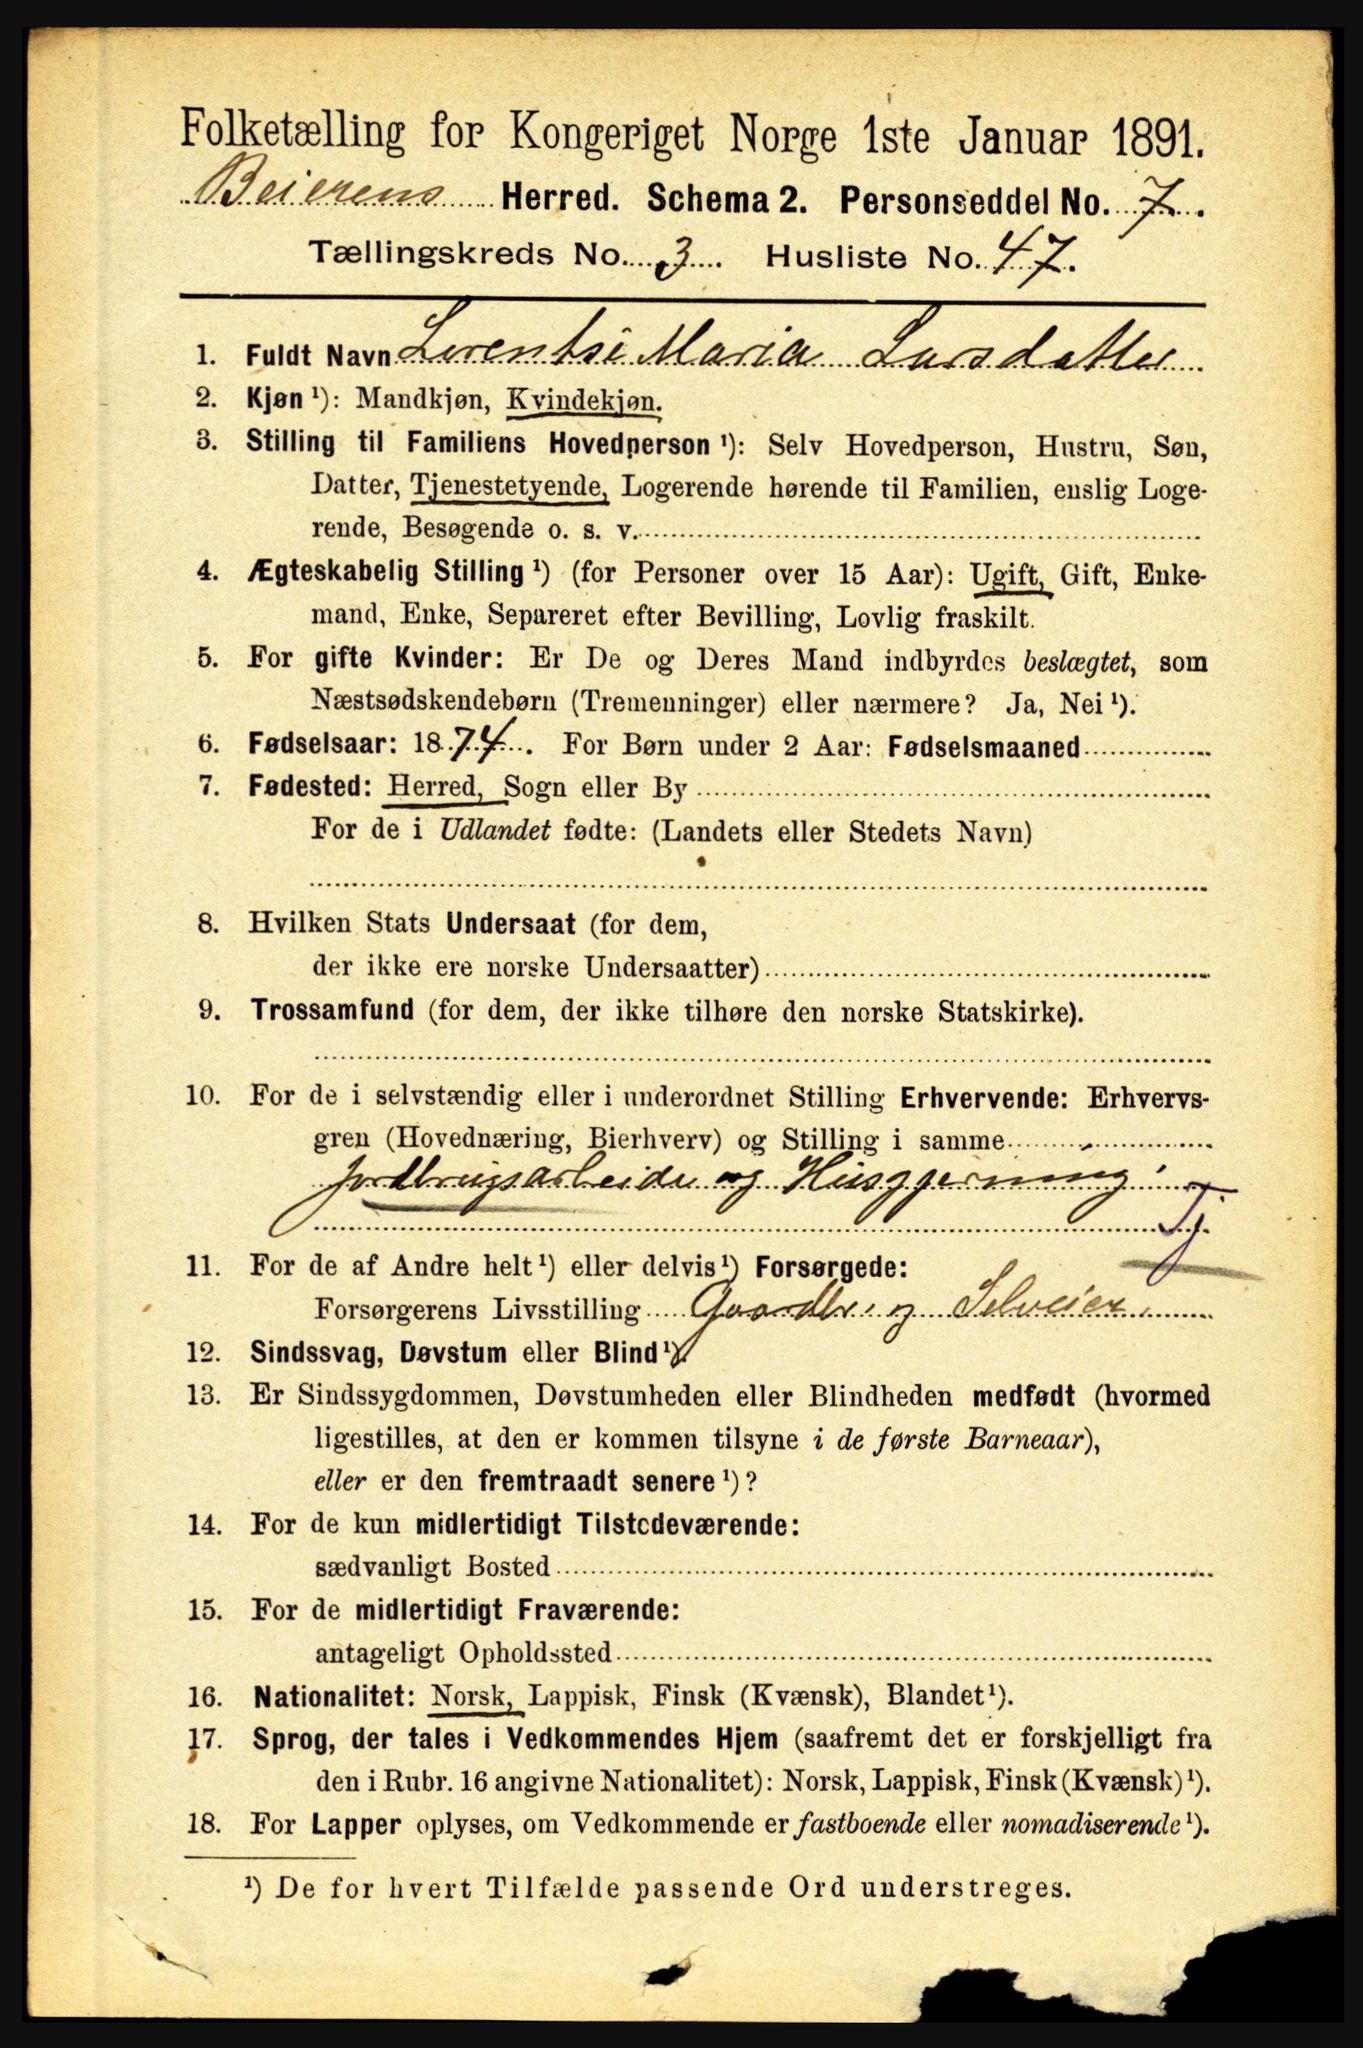 Folketælling for Kongeriget Norge 1ste Januar 1891.
Beierens Herred. Schema 2. Personseddel No. 7.
Tællingskreds No. 3. Husliste No. 47.
1. Fuldt Navn Lorentse Maria Larsdatter
2. Kjøn ¹): Mandkjøn, Kvindekjøn.
3. Stilling til Familiens Hovedperson ¹): Selv Hovedperson, Hustru, Søn,
Datter, Tjenestetyende, Logerende hørende til Familien, enslig Loge-
rende, Besøgende o. s. v.
4. Ægteskabelig Stilling ¹) (for Personer over 15 Aar): Ugift, Gift, Enke-
mand, Enke, Separeret efter Bevilling, Lovlig fraskilt.
5. For gifte Kvinder: Er De og Deres Mand indbyrdes beslægtet, som
Næstsødskendebørn (Tremenninger) eller nærmere? Ja, Nei ¹).
6. Fødselsaar: 1874. For Børn under 2 Aar: Fødselsmaaned
7. Fødested: Herred, Sogn eller By
For de i Udlandet fødte: (Landets eller Stedets Navn)
8. Hvilken Stats Undersaat (for dem,
der ikke ere norske Undersaatter)
9. Trossamfund (for dem, der ikke tilhøre den norske Statskirke).
10. For de i selvstændig eller i underordnet Stilling Erhvervende: Erhvervs-
gren (Hovednæring, Bierhverv) og Stilling i samme
Jordbrugsarbeide og Husgjerning.
Tj
11. For de af Andre helt ¹) eller delvis ¹) Forsørgede:
Forsørgerens Livsstilling Gaardbr. og Selveier.
12. Sindssvag, Døvstum eller Blind ¹).
13. Er Sindssygdommen, Døvstumheden eller Blindheden medfødt (hvormed
ligestilles, at den er kommen tilsyne i de første Barneaar),
eller er den fremtraadt senere ¹)?
14. For de kun midlertidigt Tilstedeværende:
sædvanligt Bosted
15. For de midlertidigt Fraværende:
antageligt Opholdssted
16. Nationalitet: Norsk, Lappisk, Finsk (Kvænsk), Blandet ¹).
17. Sprog, der tales i Vedkommendes Hjem (saafremt det er forskjelligt fra
den i Rubr. 16 angivne Nationalitet): Norsk, Lappisk, Finsk (Kvænsk) ¹).
18. For Lapper oplyses, om Vedkommende er fastboende eller nomadiserende ¹).
¹) De for hvert Tilfælde passende Ord understreges.